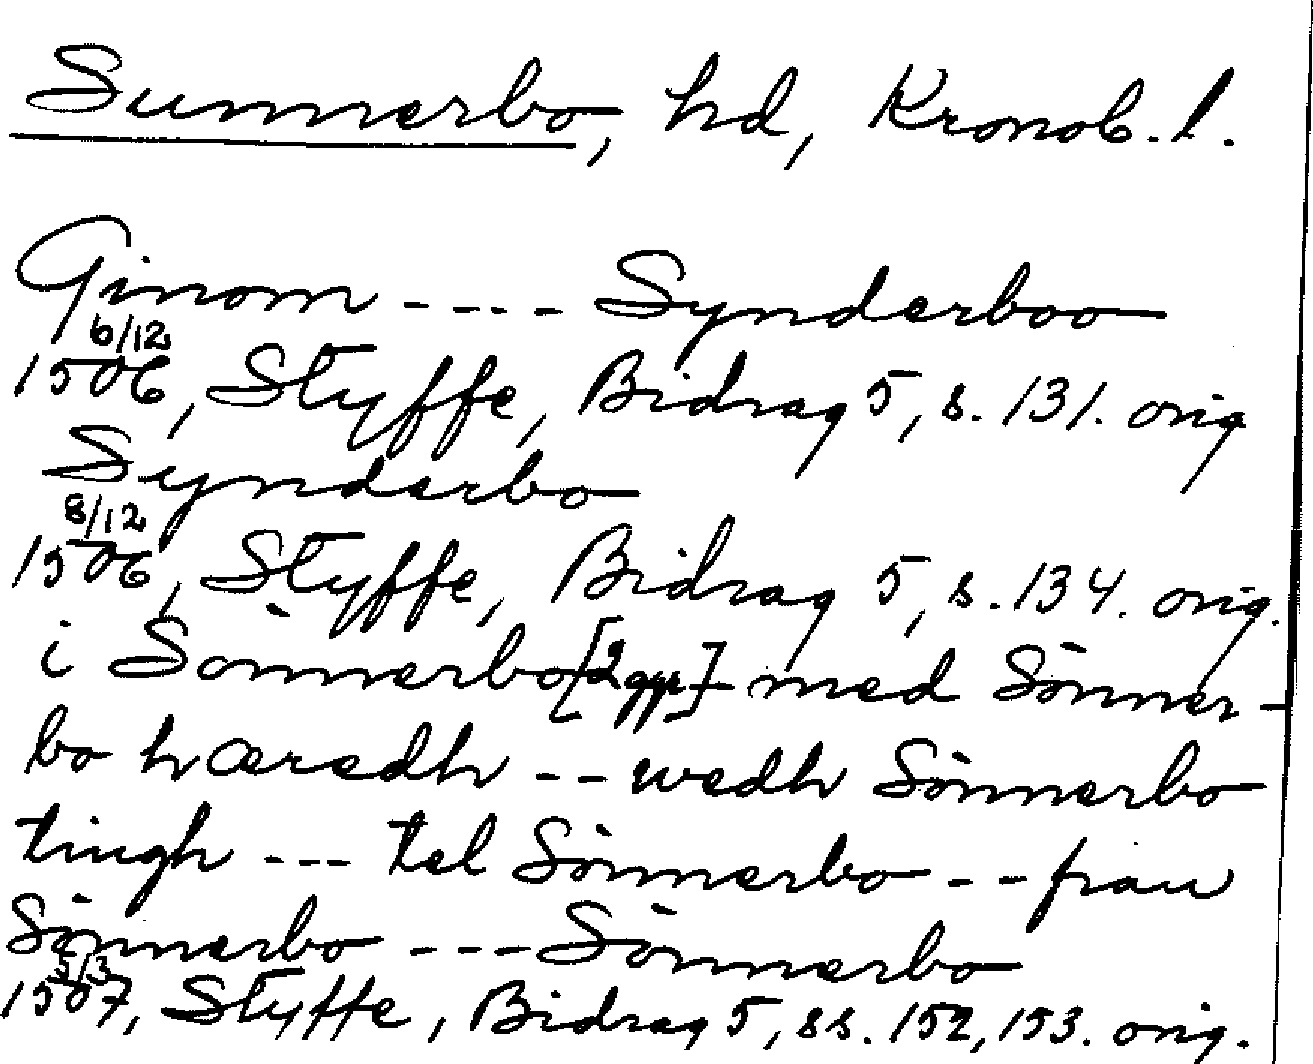 Sunnerbo, hd, Kronob. l.
Ginom ---- Synderboo
6/12
1506, Styffe, Bidrag 5, s. 131. orig
Synderbo
8/12
1506, Styffe, Bidrag 5, s. 134. orig.
i Sönnerbo [2 ggr] - med Sönner-
bo hæredh -- wedh Sönnerbo
tingh --- tel Sönnerbo -- frau
Sönnerbo --- Sönnerbo
5/3
1507, Styffe, Bidrag 5, ss. 152, 153. orig.